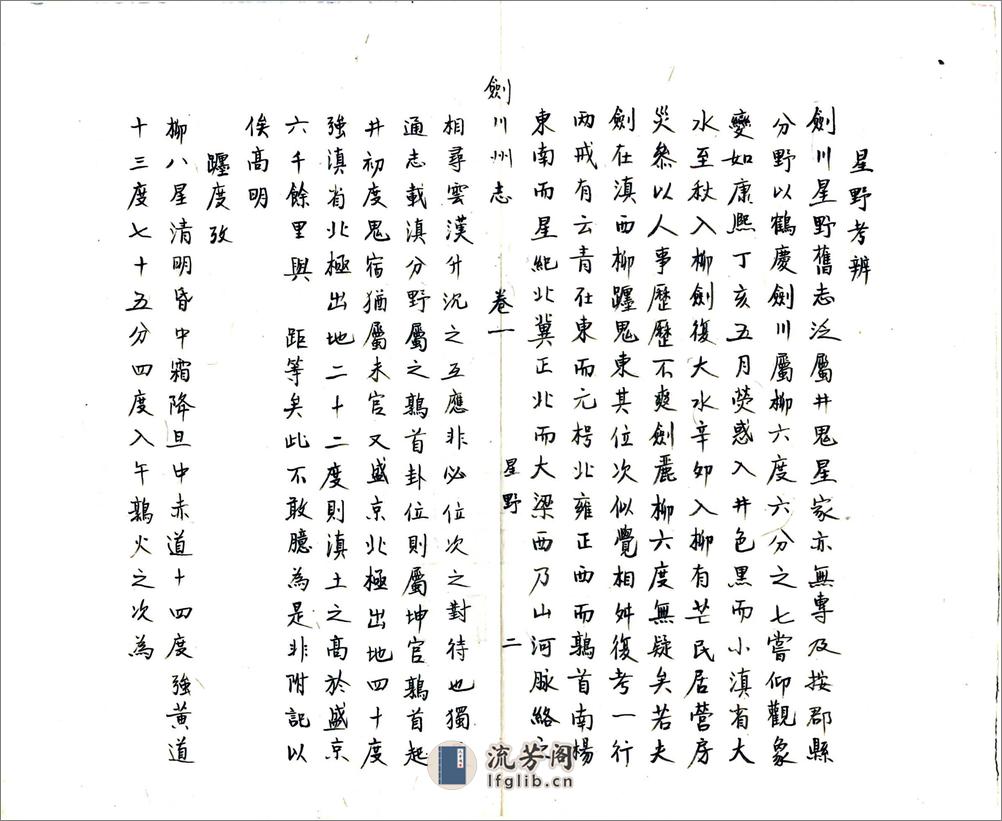 星野考辨
劍川星野舊志泛屬井鬼星家亦無專及按郡縣
分野以鶴慶劍川屬柳六度六分之七嘗仰觀象
變如康熙丁亥五月熒惑入井色黑而小滇省大
水至秋入柳劍復大水辛卯入柳有芒民居營房
災叅以人事歷歷不爽劍麗柳六度無疑矣若夫
劍在滇西柳躔鬼東其位次似覺相舛復考一行
两戒有云青在東而元枵北雍正西而鶉首南楊
東南而星紀北冀正北而大梁西乃山河脉絡
劍川州志 卷一 星野 二
相尋雲漢升沉之互應非必位次之對待也獨
通志載滇分野屬之鶉首卦位則屬坤宫鶉首起
井初度鬼宿猶屬未宫又盛京北極出地四十度
強滇省北極出地二十二度則滇土之高於盛京
六千餘里與 距等矣此不敢臆為是非附記以
俟高明
躔度攷
柳八星清明昏中霜降旦中赤道十四度強黃道
十三度七十五分四度入午鶉火之次為
流芳阁
lfglib.cn